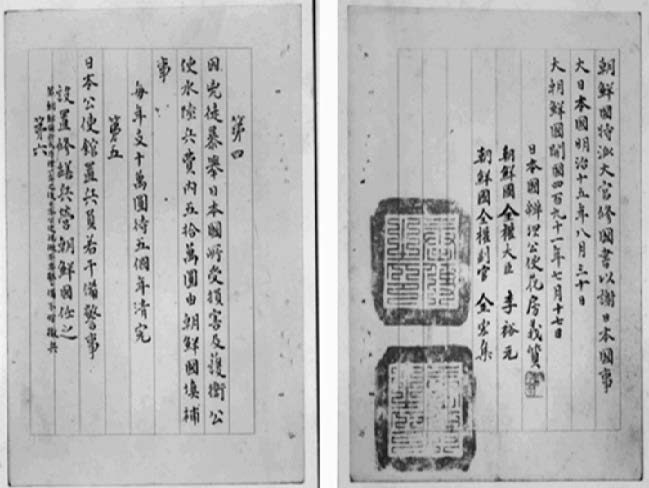 第四
因兇徒暴擧日本國所受損害及護衛公
使水陸兵費內五拾萬圓由朝鮮國塡補
事
每年支十萬圓待五個年淸完
第五
日本公使館置兵員若干備警事
設置修繕兵營朝鮮國任之
若朝鮮國兵民守律一年之後日本公使視做不要警備不妨撤兵
第六
朝鮮國特派大官修國書以謝日本國事
大日本國明治十五年八月三十日
大朝鮮國開國四百九十一年七月十七日
日本國辨理公使花房義質
朝鮮國全權大臣 李裕元
朝鮮國全權副官 金宏集